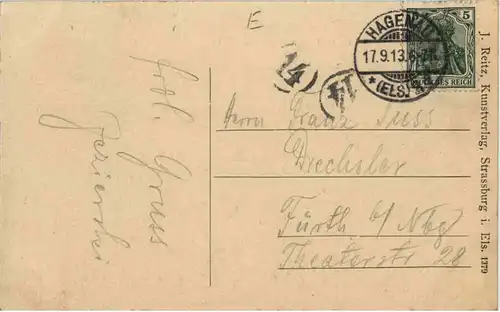 E
5
DEUTSCHES REICH
HAGENAU
17.9.13.6-7N.
* (ELS.) *
14
14
Herrn Franz Suss
Drechsler
Fürth b/ Nbg
Theaterstr 28
frdl. Gruss
J. Reitz, Kunstverlag, Strassburg i. Els. 1379